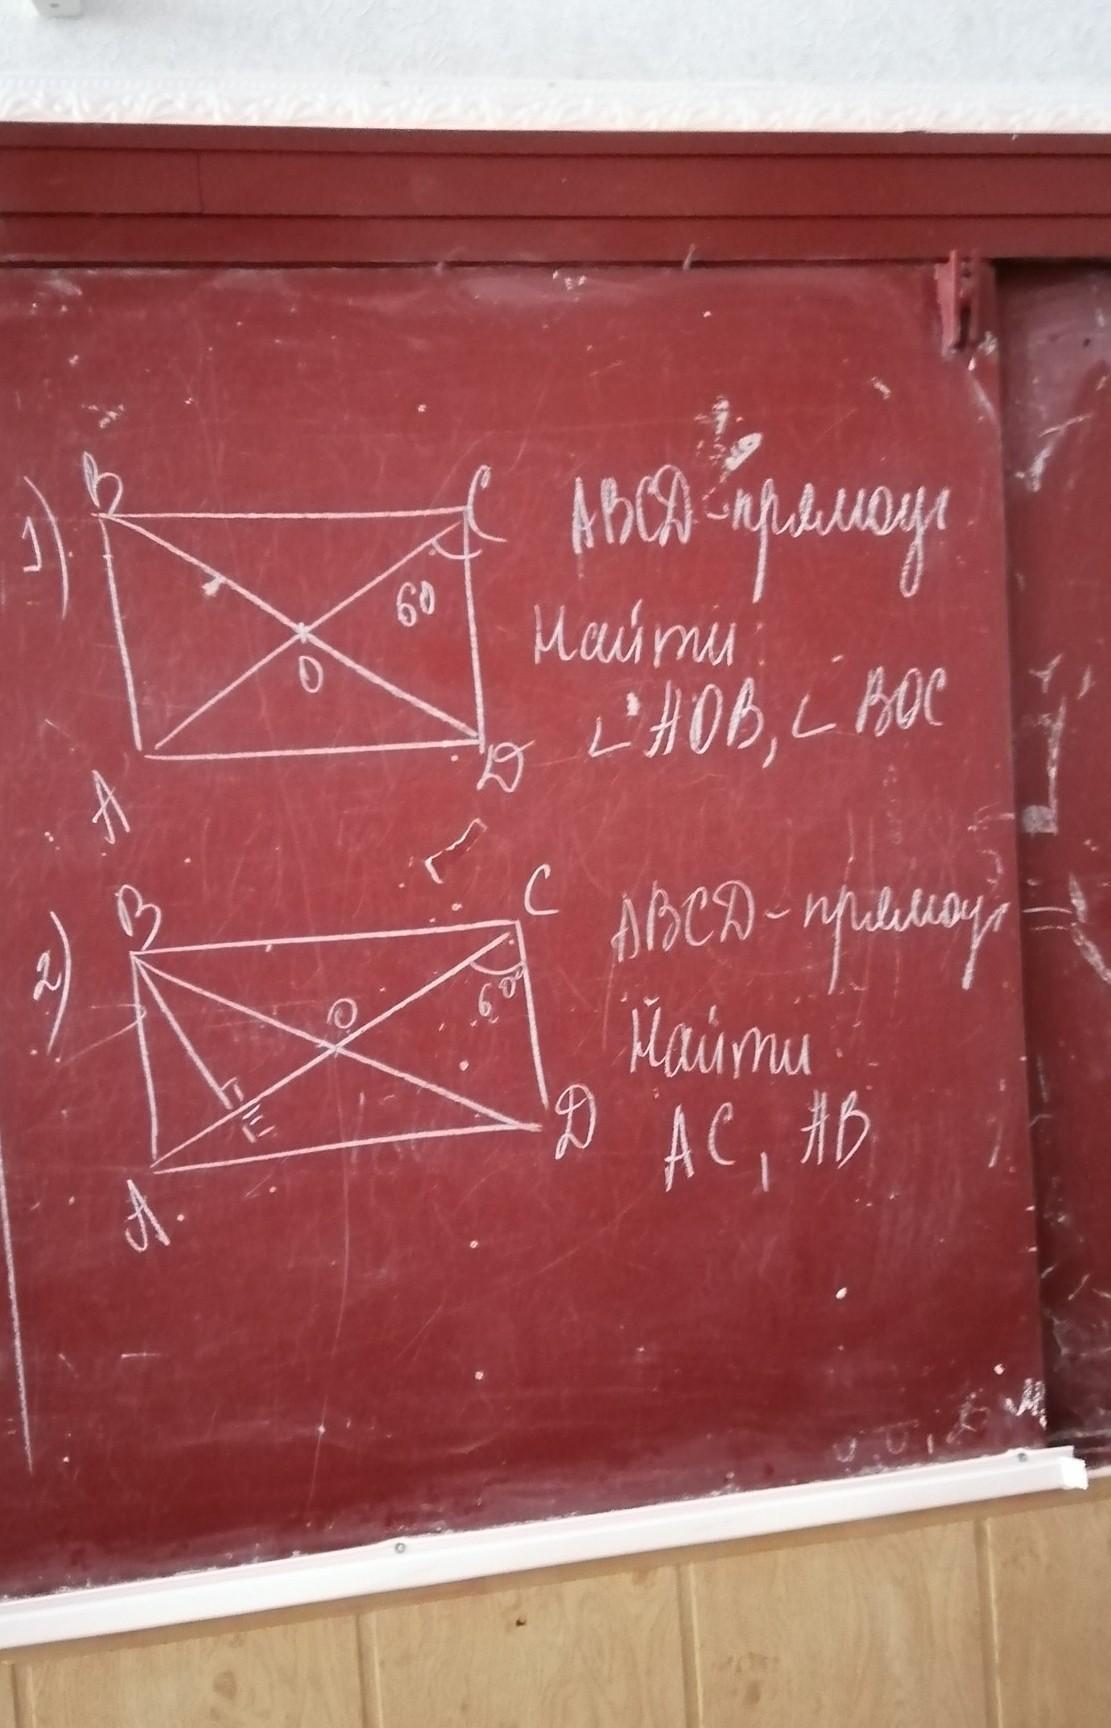 1)
B
C
ABCD-прямоуг
60
Найти
O
∠AOB, ∠BOC
D
A
2)
B
C
ABCD-прямоуг
60°
O
Найти
E
D
AC, AB
A